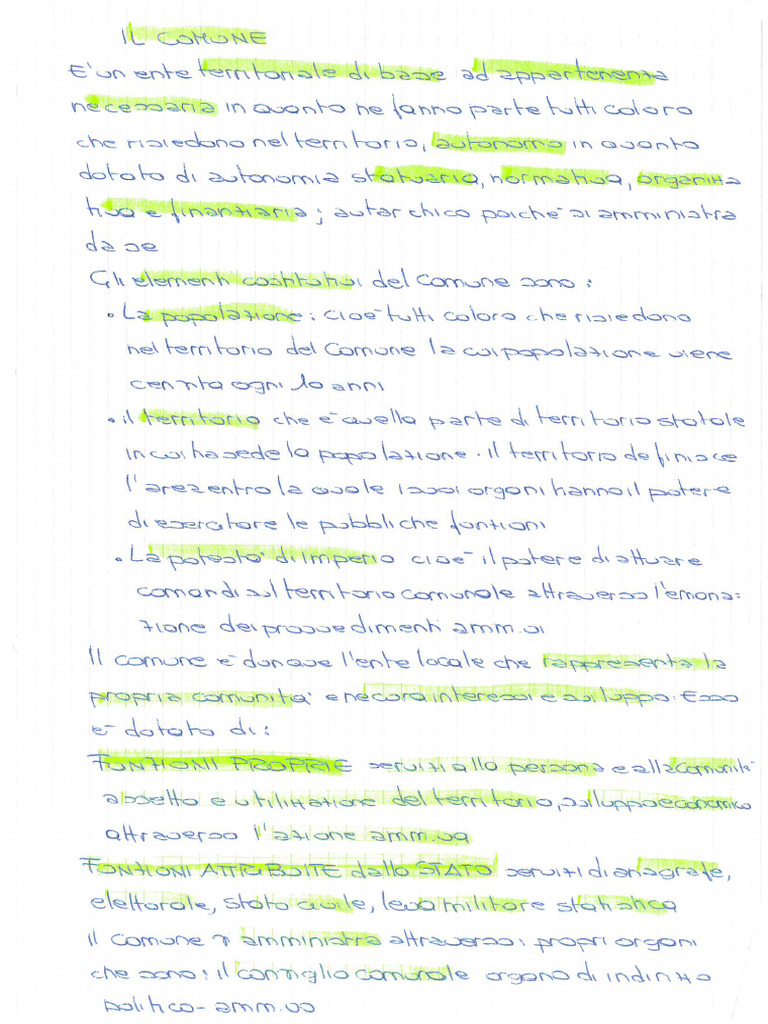 IL COMUNE
E' un ente territoriale di base ad appartenenza
necessaria in quanto ne fanno parte tutti coloro
che risiedono nel territorio, autonomo in quanto
dotato di autonomia statuaria, normativa, organizza
tiva e finanziaria; autarchico poichè si amministra
da se
Gli elementi costitutivi del Comune sono:
• La popolazione: cioè tutti coloro che risiedono
nel territorio del Comune la cui popolazione viene
censita ogni 10 anni
• il territorio che è quella parte di territorio statale
in cui ha sede la popolazione. il territorio definisce
l'area entro la quale i suoi organi hanno il potere
di esercitare le pubbliche funzioni
• La potestà di imperio cioè il potere di attuare
comandi sul territorio comunale attraverso l'emana=
zione dei provvedimenti amm.vi
Il comune è dunque l'ente locale che rappresenta la
propria comunità e ne cura interessi e sviluppo. Esso
è dotato di:
FUNZIONI PROPRIE servizi alla persona e alla comunità
assetto e utilizzazione del territorio, sviluppo economico
attraverso l'azione amm.va
FUNZIONI ATTRIBUITE dallo STATO servizi di anagrafe,
elettorale, stato civile, leva militare statistica
il comune si amministra attraverso i propri organi
che sono: il consiglio comunale organo di indirizzo
politico-amm.vo